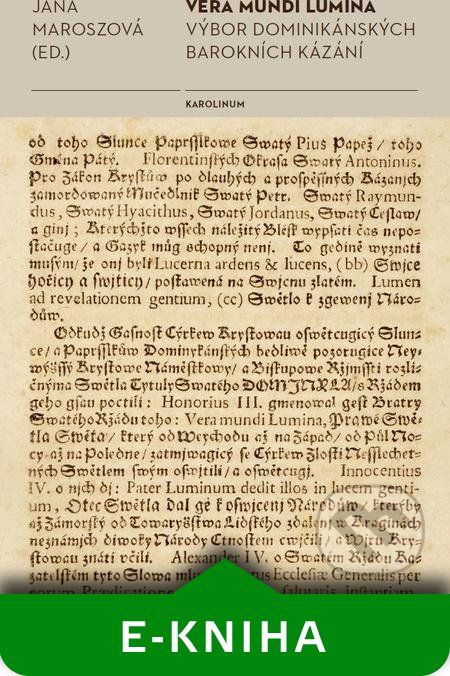 JANA
MAROSZOVÁ
(ED.)
VERA MUNDI LUMINA
VÝBOR DOMINIKÁNSKÝCH
BAROKNÍCH KÁZÁNÍ
KAROLINUM
od toho Slunce Paprsslkowe Swatý Pius Papež / toho
Gména Pátý. Florentinských Okrasa Swatý Antoninus.
Pro Zákon Krystůw po dlauhých a prospěssných Kázanjch
zamordowaný Mučedlnjk Swatý Petr. Swatý Raymun-
dus, Swatý Hyacithus, Swatý Jordanus, Swatý Ceslaw/
a ginj ; Kterýchžto wssech náležitý Blesk wypsati čas nepo-
stačuge/ a Gazyk můg schopný nenj. To gedině wyznati
musým/ že onj byli Lucerna ardens & lucens, (bb) Swjce
hořicý a swjticý/ postawená na Swjcnu zlatém. Lumen
ad revelationem gentium, (cc) Swětlo k zgewenj Náro-
důw.
Odkudž Gasnost Cýrkew Krystowau oswětcugicý Slun-
ce/ a Paprsslkůw Dominykánských bedliwě pozorugice Ney-
wýšssý Krystowe Náměstkowy/ a Biskupowe Ržjmsstj rozli-
čnýma Swětla Tytuly Swatého DOMINYKA/ s Ržádem
geho gsau poctili : Honorius III. gmenowal gest Bratry
Swatého Ržádu toho : Vera mundi Lumina, Prawé Swě-
tla Swěta/ který od Weychodu až na Západ/ od Půl No-
cy až na Poledne/ zatmjwagicý se Cýrkew Zlostj Nesslechet-
ných Swětlem swým oswjtili/ a oswětcugj. Innocentius
IV. o njch dj : Pater Luminum dedit illos in lucem genti-
um, Otec Swětla dal gé k oswjcenj Národůw/ kteřjby
až Zámorský od Towaryšstwa Lidského zdalené w Kraginách
neznámých diwoky Národy Ctnostem cwičili/ a Wjru Kry-
stowau znáti včili. Alexander IV. o Swatém Ržádu Ka-
zatelském tyto Slowa Ecclesiæ Generalis per
salutaris instantiam
E-KNIHA